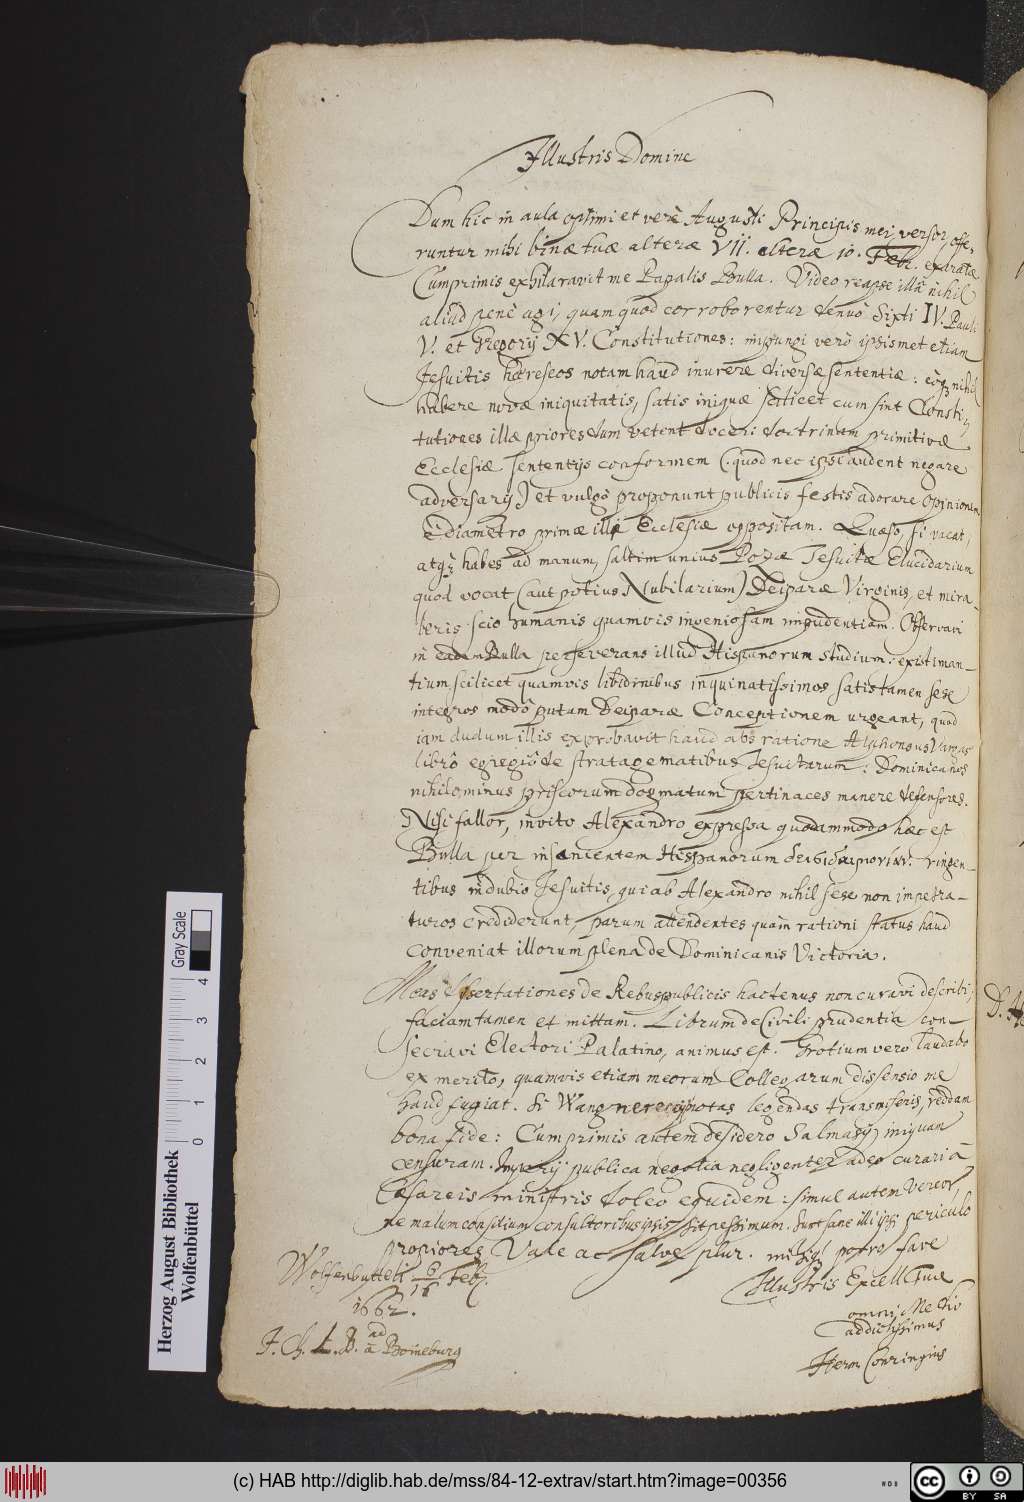 Illustris Domine
Dum hic in aula optimi et verè Augusti Principis mei versor, offe-
runtur mihi binæ tuæ alteræ VII. alteræ 10. Febr. exaratæ
Cumprimis exhilaravit me Papalis Bulla. Video reapse illâ nihil
aliud penè agi, quam quod corroborentur denuò Sixti IV. Pauli
V. et Gregorij XV. Constitutiones: impungi verò ipsismet etiam
Jesuitis hæreseos notam haud inurere diversæ sententiæ: eoq; nihil
habere novæ iniquitatis, satis iniquæ scilicet cum sint Consti-
tutiones illæ priores dum vetent doceri doctrinam primitivæ
Ecclesiæ sententijs conformem (quod nec ipsi audent negare
adversarij) et vulgò proponunt publicis festis adorare opinionem
è diametro primæ illi Ecclesiæ oppositam. Quæso, si vacat,
atq; habes ad manum, saltim unius Pozæ Jesuitæ Elucidarium
quod vocat (aut potius Nubilarium) Deiparæ Virginis, et mira-
beris scio humanis quamvis ingeniosam impudentiam. Observavi
in eadem Bulla perseverans illud Hispanorum studium: existiman-
tium scilicet quamvis libidinibus inquinatissimos satis tamen sese
integros modò putam Deiparæ Conceptionem urgeant, quod
iam dudum illis exprobavit haud abs ratione Alphonsus Vargas
libro egregiô de stratagematibus Jesuitarum: Dominicanos
nihilominus priscorum dogmatum pertinaces manere defensores.
Nisi fallor, invito Alexandro expressa quodammodo hæc est
Bulla per insanientem Hispanorum δεισιδαιμονίαν. ringen-
tibus indubio Jesuitis, qui ab Alexandro nihil sese non impetra-
turos crediderunt, parum attendentes quàm rationi status haud
conveniat illorum plena de Dominicanis Victoria.
Meas dissertationes de Rebuspublicis hactenus non curavi describi,
faciam tamen et mittam. Librum de Civili prudentia con-
secravi Electori Palatino, animus est. Grotium verò laudabo
ex merito, quamvis etiam meorum Collegarum dissensio me
haud fugiat. Si Wangnereccij notas legendas transmiseris, reddam
bona fide: Cumprimis autem desidero Salmasij iniquam
censuram. Imperij publica negotia negligenter adeo curari à
Cæsareis ministris doleo equidem: simul autem vereor
ne malum consilium consultoribus ipsis sit pessimum. Sunt sane illi ipsi periculo
propiores Vale ac salve plur. mihiq; porro fave
Wolfenbutteli 6/16 Feb.
1662.
Illustris Excell. Tuæ
omni Modo
addictissimus
Herm Conringius
J. Ch. L. B. ad
à Boineburg
D.
(c) HAB http://diglib.hab.de/mss/84-12-extrav/start.htm?image=00356
Herzog August Bibliothek
Wolfenbüttel
0 1 2 3 4
Gray Scale
WDB
cc BY SA